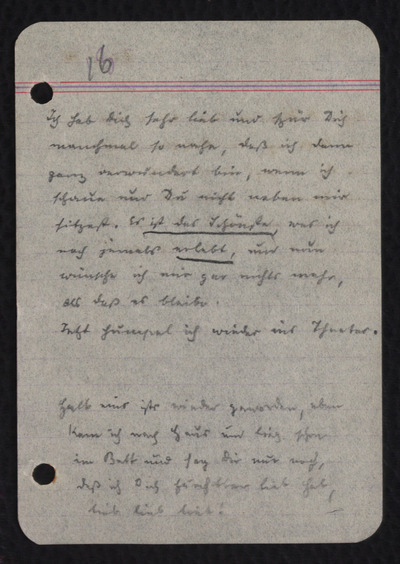 16
Ich hab Dich sehr lieb und spür Dich
manchmal so nahe, daß ich dann
ganz verwundert bin, wenn ich
schaue und Du nicht neben mir
sitzest. Es ist das Schönste, was ich
noch jemals erlebt, und nun
wünsche ich mir gar nichts mehr,
als daß es bleibe.
Jetzt humpel ich wieder ins Theater.
Halb eins ists wieder geworden, eben
kam ich nach Haus und lieg schon
im Bett und sag Dir nur noch,
daß ich Dich furchtbar lieb hab,
lieb lieb lieb!